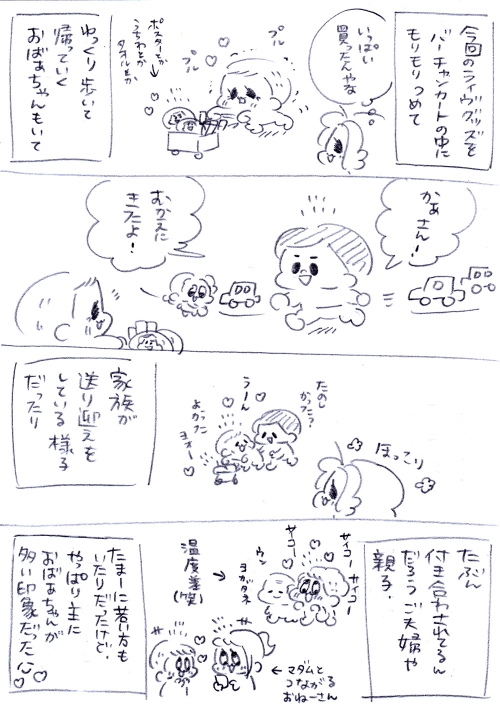 今回のライヴグッズを
バーチャンカートの中に
もりもりつめて
いっぱい
買ったんやな
プル
プル
ポスターとか
うちわとか
タオルとか
ゆっくり歩いて
帰っていく
おばぁちゃんもいて
かぁさん!
むかえに
きたよ!
ほっこり
たのし
かった?
うーん
よかった
ヨォー
家族が
送り迎えを
している様子
だったり
たぶん
付き合わされてるん
だろうご夫婦や
親子.
サイコー
サイコー
サイコー
ウン
ヨカタネ
温度差(笑)
←マダムと
つながる
おねーさん
たまーに若い方も
いたりだったけど、
やっぱり主に
おばぁちゃんが
多い印象だった